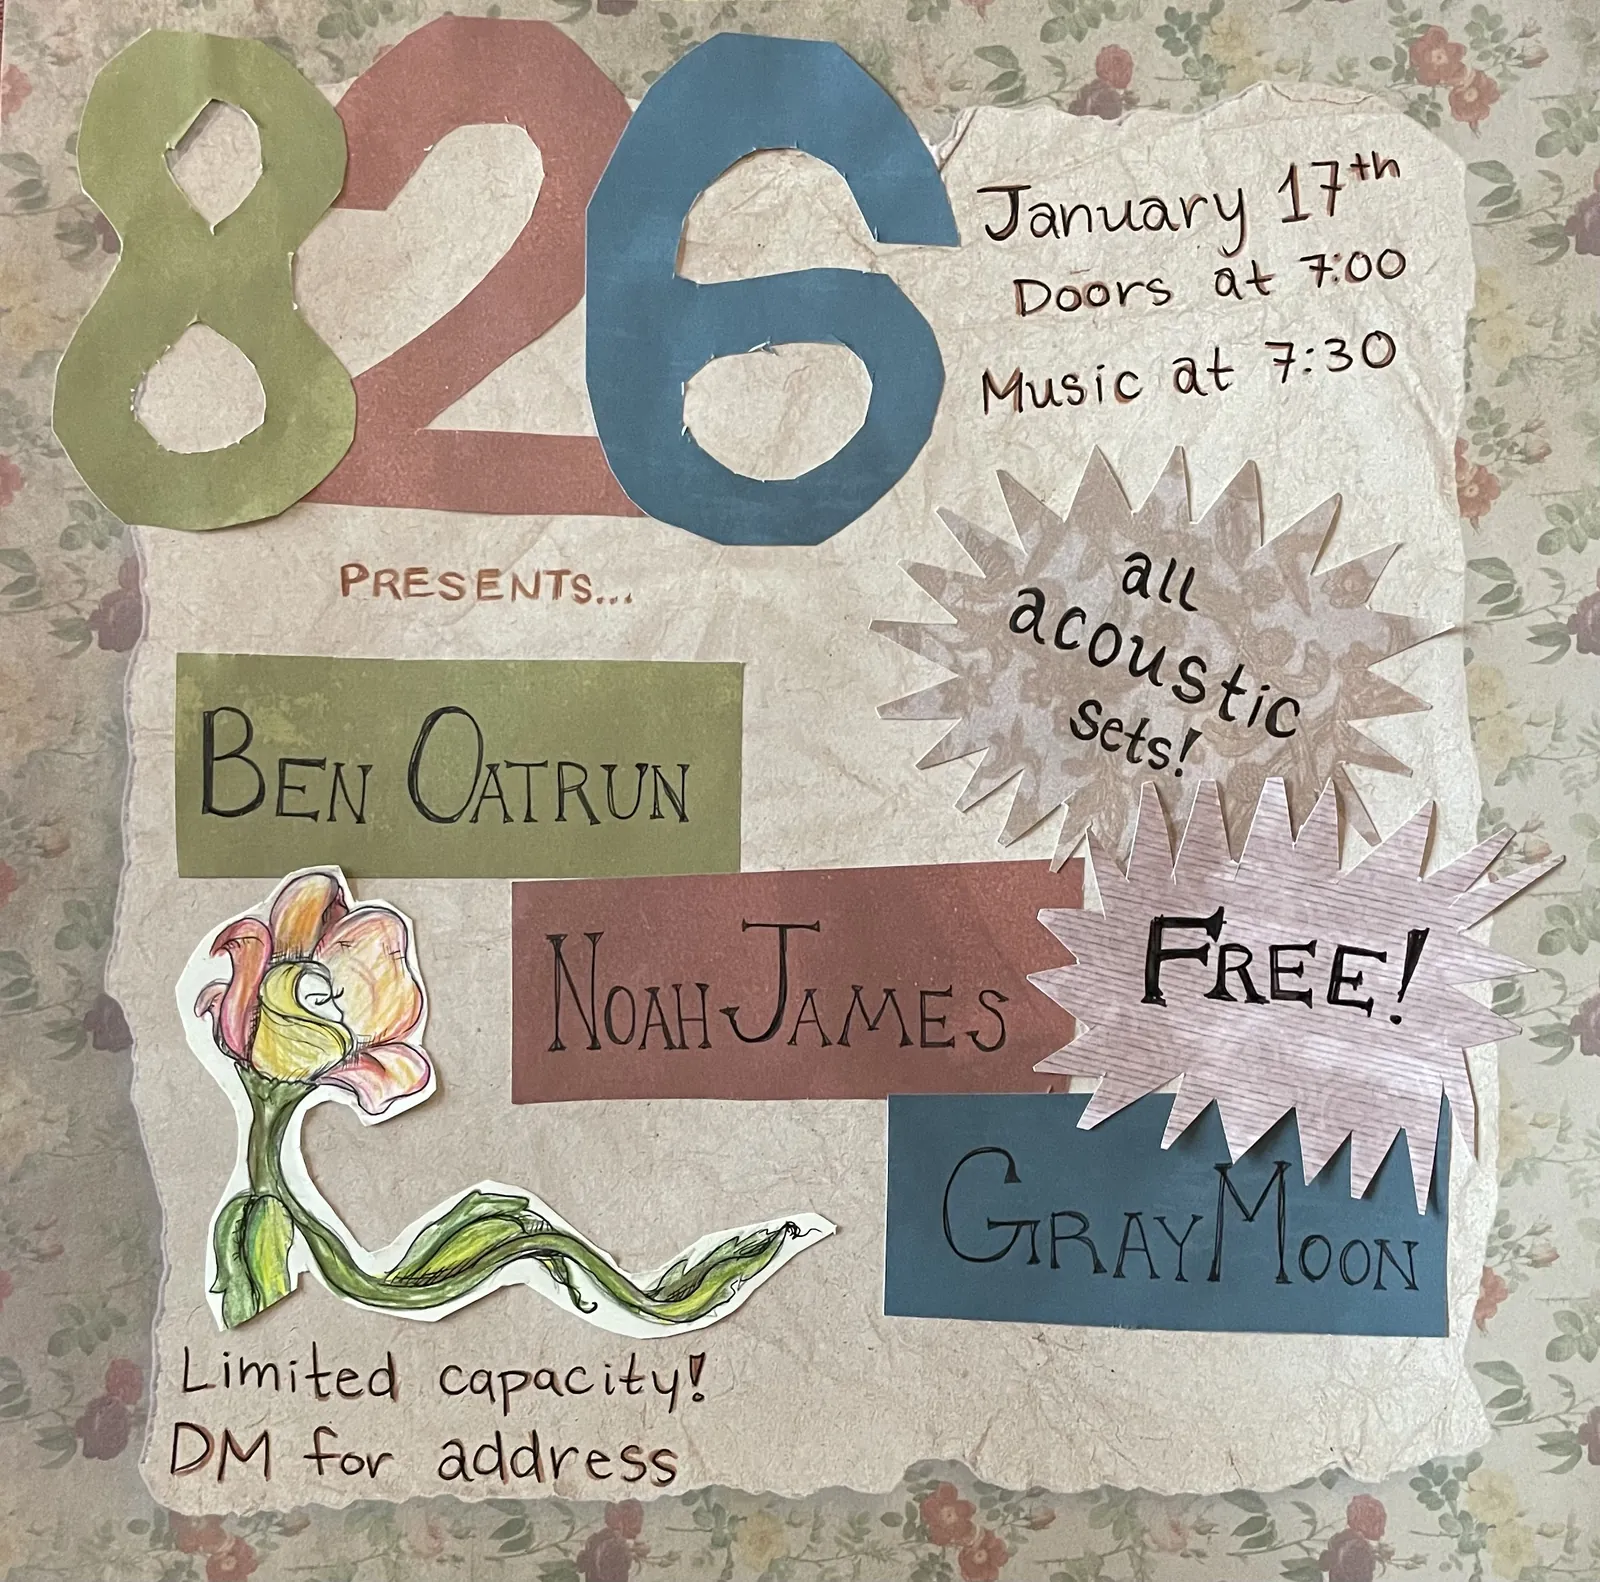 826
January 17th
Doors at 7:00
Music at 7:30
PRESENTS...
all
acoustic
sets!
BEN OATRUN
NOAH JAMES
FREE!
GRAY MOON
Limited capacity!
DM for address